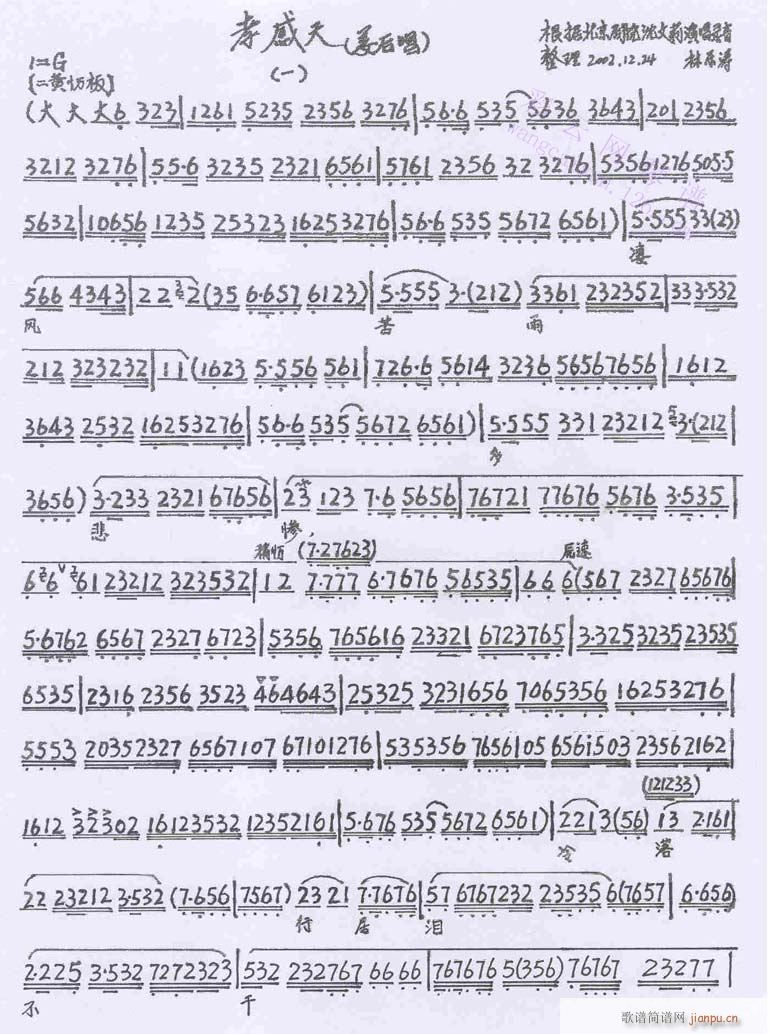 孝感天(姜后唱)
根据北京剧院沈文莉演唱录音
1=G
(一)
整理 2002.12.24
【二黄慢板】
(大 大 大6 323|1261 5235 2356 3276|56·6 535 5636 3643|201 2356
3212 3276|55·6 3235 2321 6561|5761 2356 32 3276|53561276 505·5
5632|10656 1235 25323 16253276|56·6 535 5672 6561)|5·55533(23)
凄
566 4343|22 2(35 6·657 6123)|5·555 3·(212) 3361 232352|333·532
风 苦 雨
212 323232|11(1623 5·556 561|726·6 5614 3236 56567656|1612
3643 2532 16253276|56·6 535 5672 6561)|5·555 331 23212 3·(212|
多
3656) 3·233 2321 67656|23 123 7·6 5656|76721 77676 5676 3·535|
悲 惨,
稍慢 (7·27623) 原速
6 6 61 23212 323532|12 7·777 6·7676 56535|66 6(567 2327 65676|
5·6762 6567 2327 6723|5356 765616 23321 6723765|3·325323523535
6535|2316 2356 3523 464643|25325 3231656 7065356 16253276|
5553 20352327 6567107 67101276|535356 7656105 6561503 23562162|
(121233)
1612 32302 16123532 12352161|5·676 535 5672 6561)|2213(56) 13 2·161|
冷 落
22 23212 3·532 (7·656|7567) 2321 7·7676|57 6767232 23535 6(7657|6·656)
行 居 泪
2·225 3·532 7272323|532 232767 66 66|767676 5(356) 76767 23277|
不 干
歌谱简谱网
jianpu.cn